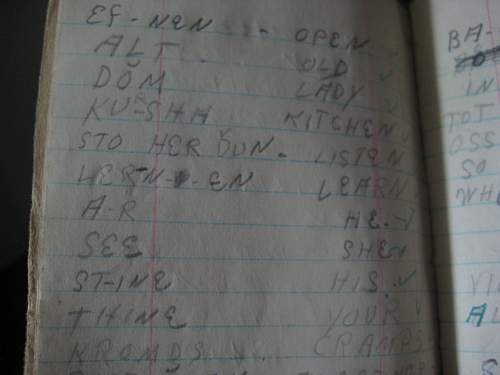 EF-NEN - OPEN
ALT OLD
DOM LADY
KU-SHH KITCHEN
STO HER DUN - LISTEN
LERN-EN LEARN
A-R HE
SEE SHE
ST-INE HIS
THINE YOUR
KROMDS CRAMPS
BA-
IN
TOT
OSS
SO
WHE